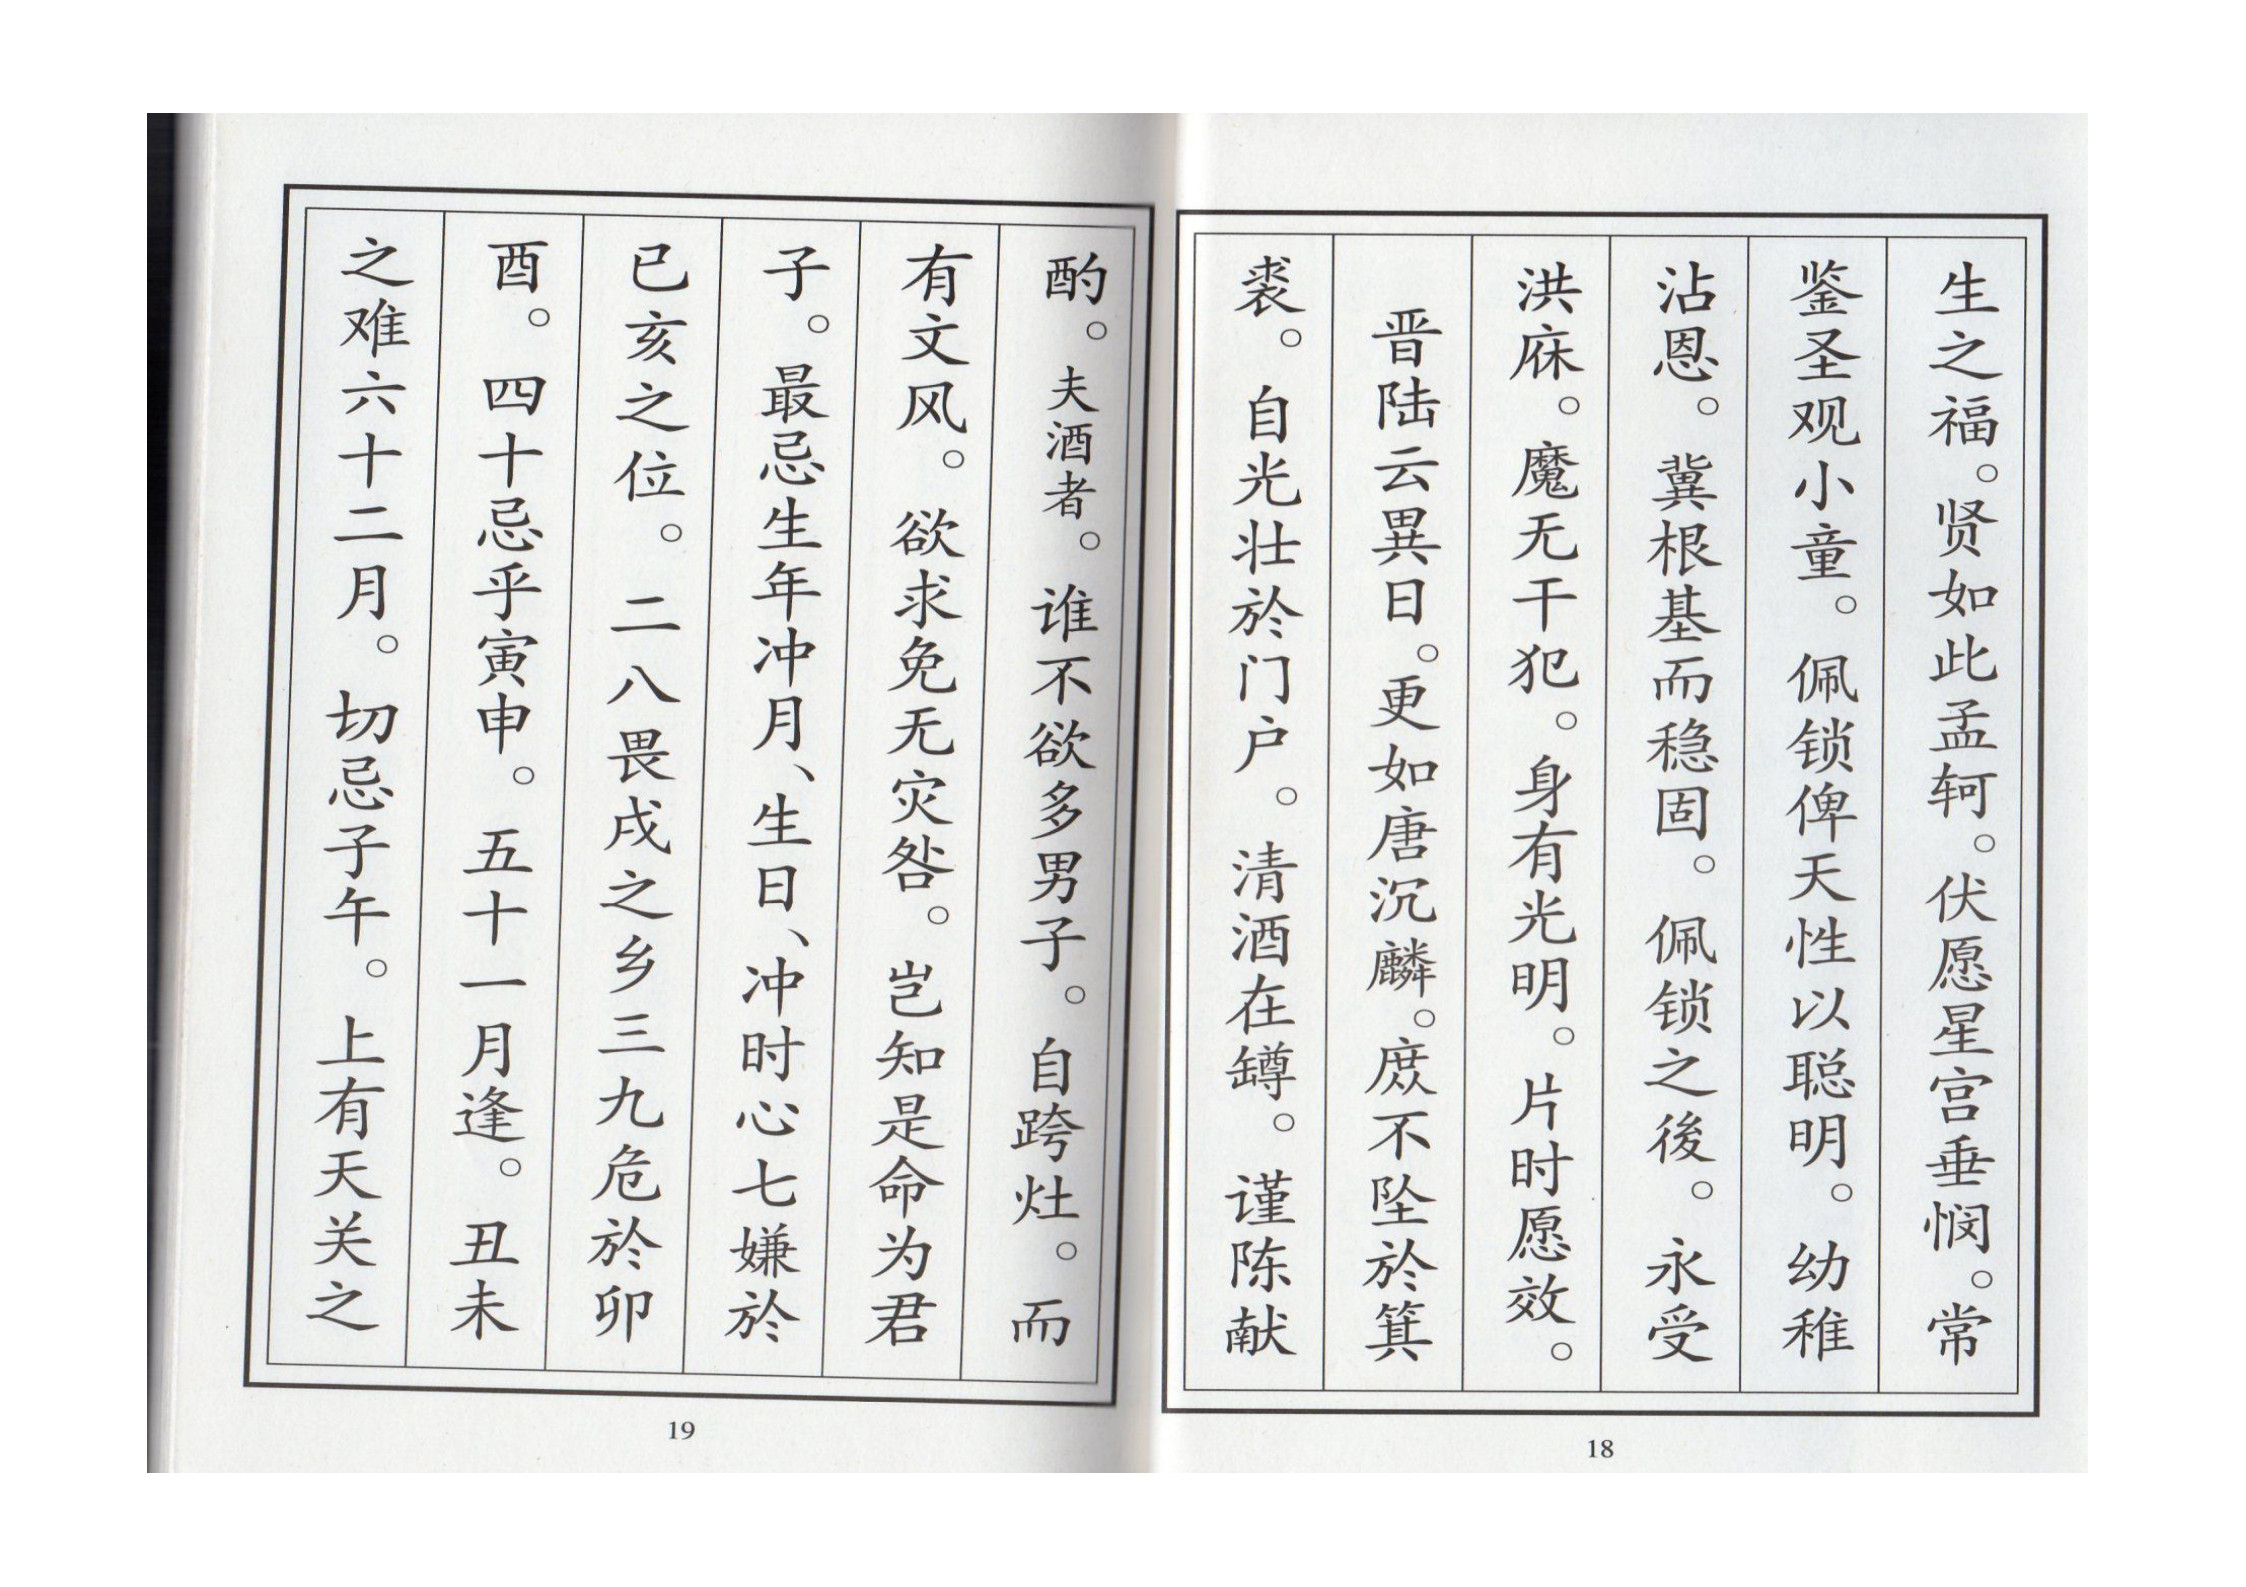 生之福。贤如此孟轲。伏愿星宫垂悯。常
鉴圣观小童。佩锁俾天性以聪明。幼稚
沾恩。冀根基而稳固。佩锁之後。永受
洪庥。魔无干犯。身有光明。片时愿效。
晋陆云異日。更如唐沉麟。庶不坠於箕
裘。自光壮於门户。清酒在罇。谨陈献
18
酌。夫酒者。谁不欲多男子。自跨灶。而
有文风。欲求免无灾咎。岂知是命为君
子。最忌生年冲月、生日、冲时心七嫌於
已亥之位。二八畏戌之乡三九危於卯
酉。四十忌乎寅申。五十一月逢。丑未
之难六十二月。切忌子午。上有天关之
19